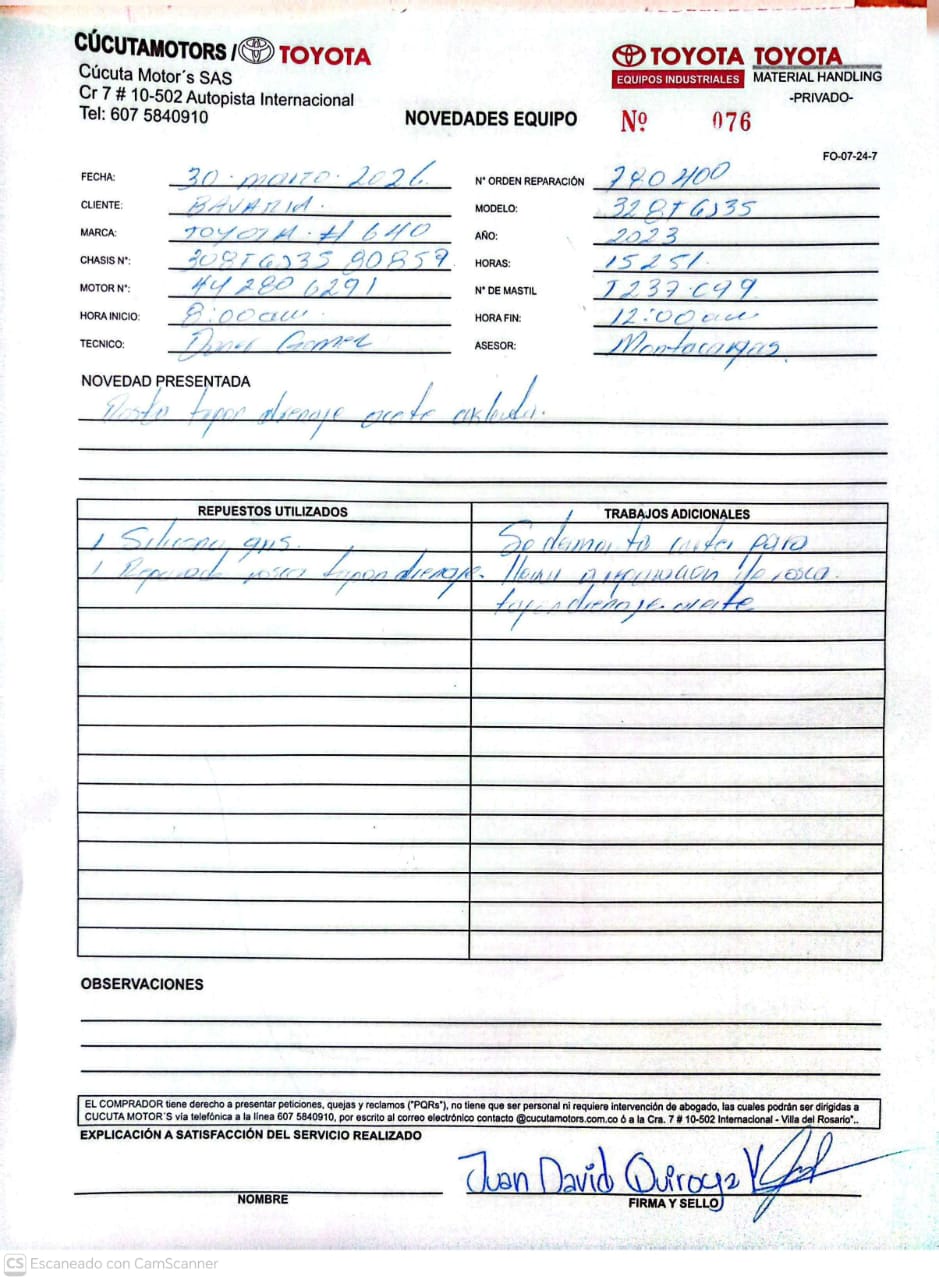 CÚCUTAMOTORS / TOYOTA
Cúcuta Motor´s SAS
Cr 7 # 10-502 Autopista Internacional
Tel: 607 5840910
TOYOTA TOYOTA
EQUIPOS INDUSTRIALES MATERIAL HANDLING
-PRIVADO-
NOVEDADES EQUIPO Nº 076
FO-07-24-7
FECHA: 30 · marzo · 2026 N° ORDEN REPARACIÓN 780400
CLIENTE: BAVARIA. MODELO: 328T6J35
MARCA: TOYOTA · # 640 AÑO: 2023
CHASIS N°: 308T6J35 80859 HORAS: 15251.
MOTOR N°: 44280 6291 N° DE MASTIL
HORA INICIO: 8:00am. HORA FIN: 12:00am
TECNICO: Gomez ASESOR: Montacargas.
NOVEDAD PRESENTADA
tapon drenaje aceite
REPUESTOS UTILIZADOS TRABAJOS ADICIONALES
1 Silicona gris. Se para
1 rosca tapon drenaje. de rosca.
tapon drenaje aceite
OBSERVACIONES
EL COMPRADOR tiene derecho a presentar peticiones, quejas y reclamos ("PQRs"), no tiene que ser personal ni requiere intervención de abogado, las cuales podrán ser dirigidas a
CUCUTA MOTOR´S vía telefónica a la línea 607 5840910, por escrito al correo electrónico contacto @cucutamotors.com.co ó a la Cra. 7 # 10-502 Internacional - Villa del Rosario"..
EXPLICACIÓN A SATISFACCIÓN DEL SERVICIO REALIZADO
Juan David Quiroga V
NOMBRE FIRMA Y SELLO
CS Escaneado con CamScanner